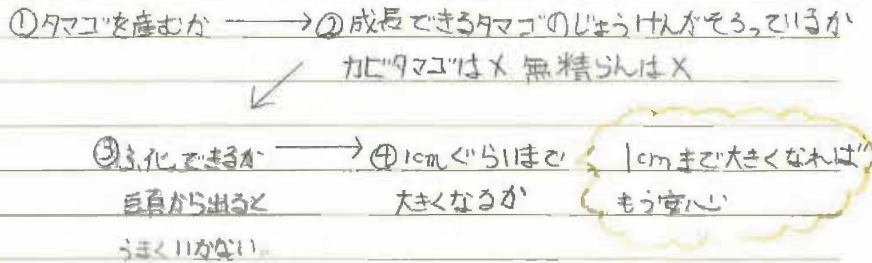 ①タマゴを産むか → ②成長できるタマゴのじょうけんがそろっているか
カビタマゴは× 無精らんは×
③ふ化できるか → ④1cmぐらいまで
大きくなるか
頭から出ると
うまくいかない。
1cmまで大きくなれば
もう安心